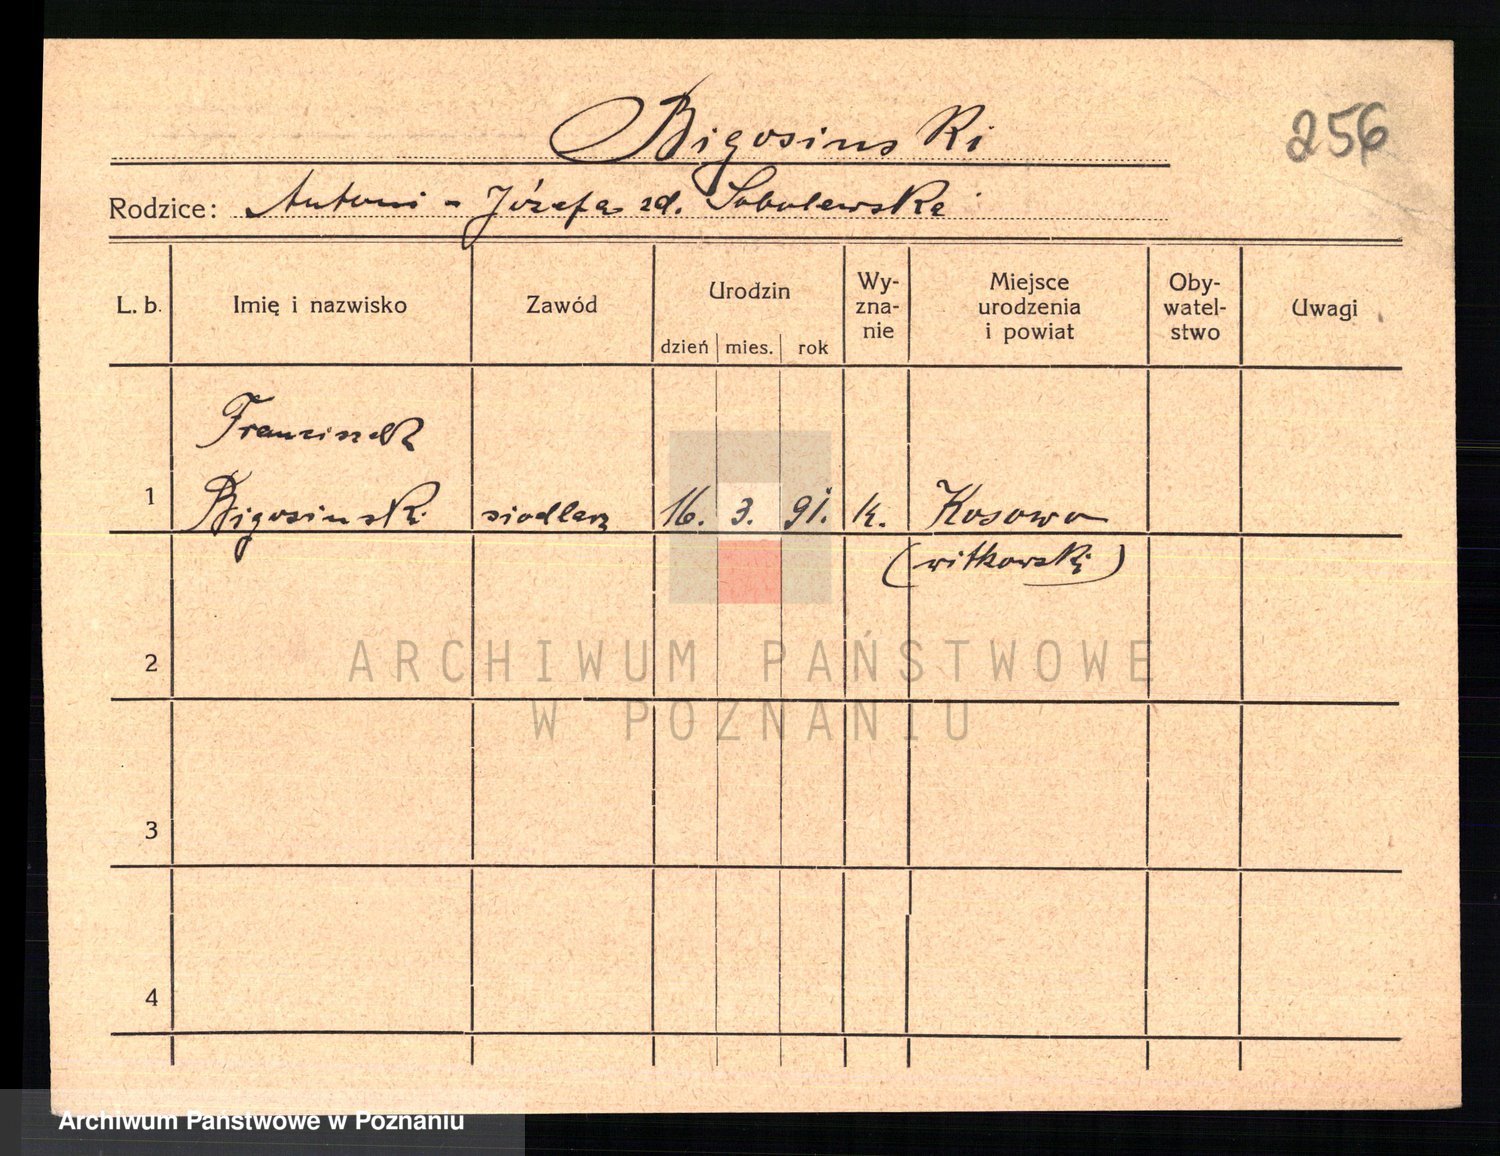 Bigosinski
256
Rodzice: Antoni - Józefa zd. Sobolewska
L. b.
Imię i nazwisko
Zawód
Urodzin
dzień mies. rok
Wy-
zna-
nie
Miejsce
urodzenia
i powiat
Oby-
watel-
stwo
Uwagi
Franciszek
1 Bigosinski siodlarz 16. 3. 91. k. Kosowo
(witkowski)
2
ARCHIWUM PAŃSTWOWE
W POZNANIU
3
4
Archiwum Państwowe w Poznaniu